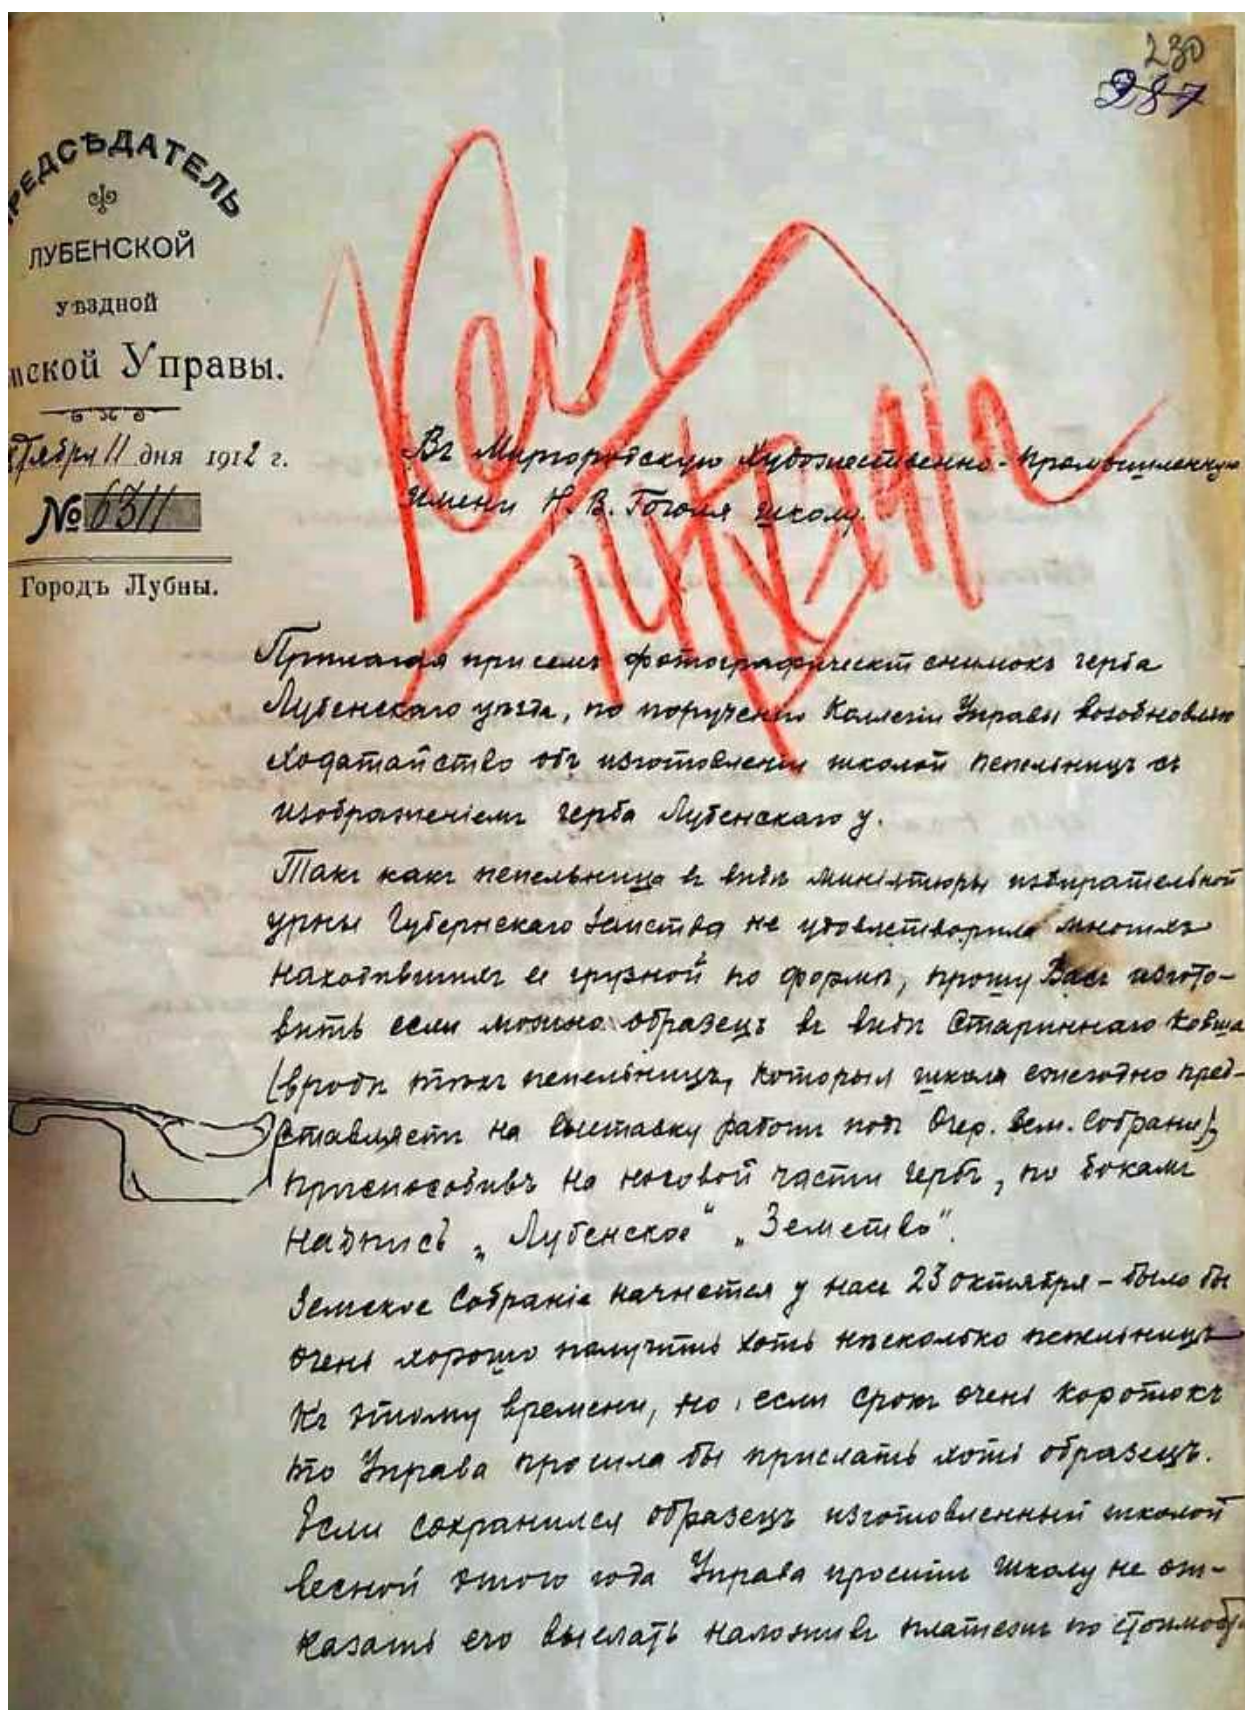 230
987
ПРЕДСѢДАТЕЛЬ
ЛУБЕНСКОЙ
УѢЗДНОЙ
мской Управы.
тября 11 дня 1912 г.
№ 6311
Городъ Лубны.
Въ Миргородскую Художественно-Промышленную
имени Н. В. Гоголя школу.
Прилагая при семъ фотографическій снимокъ герба
Лубенскаго уѣзда, по порученію Коллегіи Управы возобновляю
ходатайство объ изготовленіи школой пепельницъ съ
изображеніемъ герба Лубенскаго у.
Такъ какъ пепельница въ видѣ миніатюры избирательной
урны Губернскаго Земства не удовлетворила многихъ
находившихъ ее грузной по формѣ, прошу Васъ изгото-
вить если можно образецъ въ видѣ Стариннаго Ковша
(вродѣ тѣхъ пепельницъ, которыя школа ежегодно пред-
ставляетъ на выставку работъ подъ Очер. Зем. Собраніе),
приспособивъ на носовой части гербъ, по бокамъ
надпись „Лубенское" „Земство".
Земское Собраніе начнется у насъ 23 октября - было бы
очень хорошо получить хоть нѣсколько пепельницъ
къ этому времени, но если срокъ очень коротокъ
то Управа просила бы прислать хоть образецъ.
Если сохранился образецъ изготовленный школой
весной этого года Управа проситъ школу не от-
казать его выслать наложивъ платежъ по стоимости